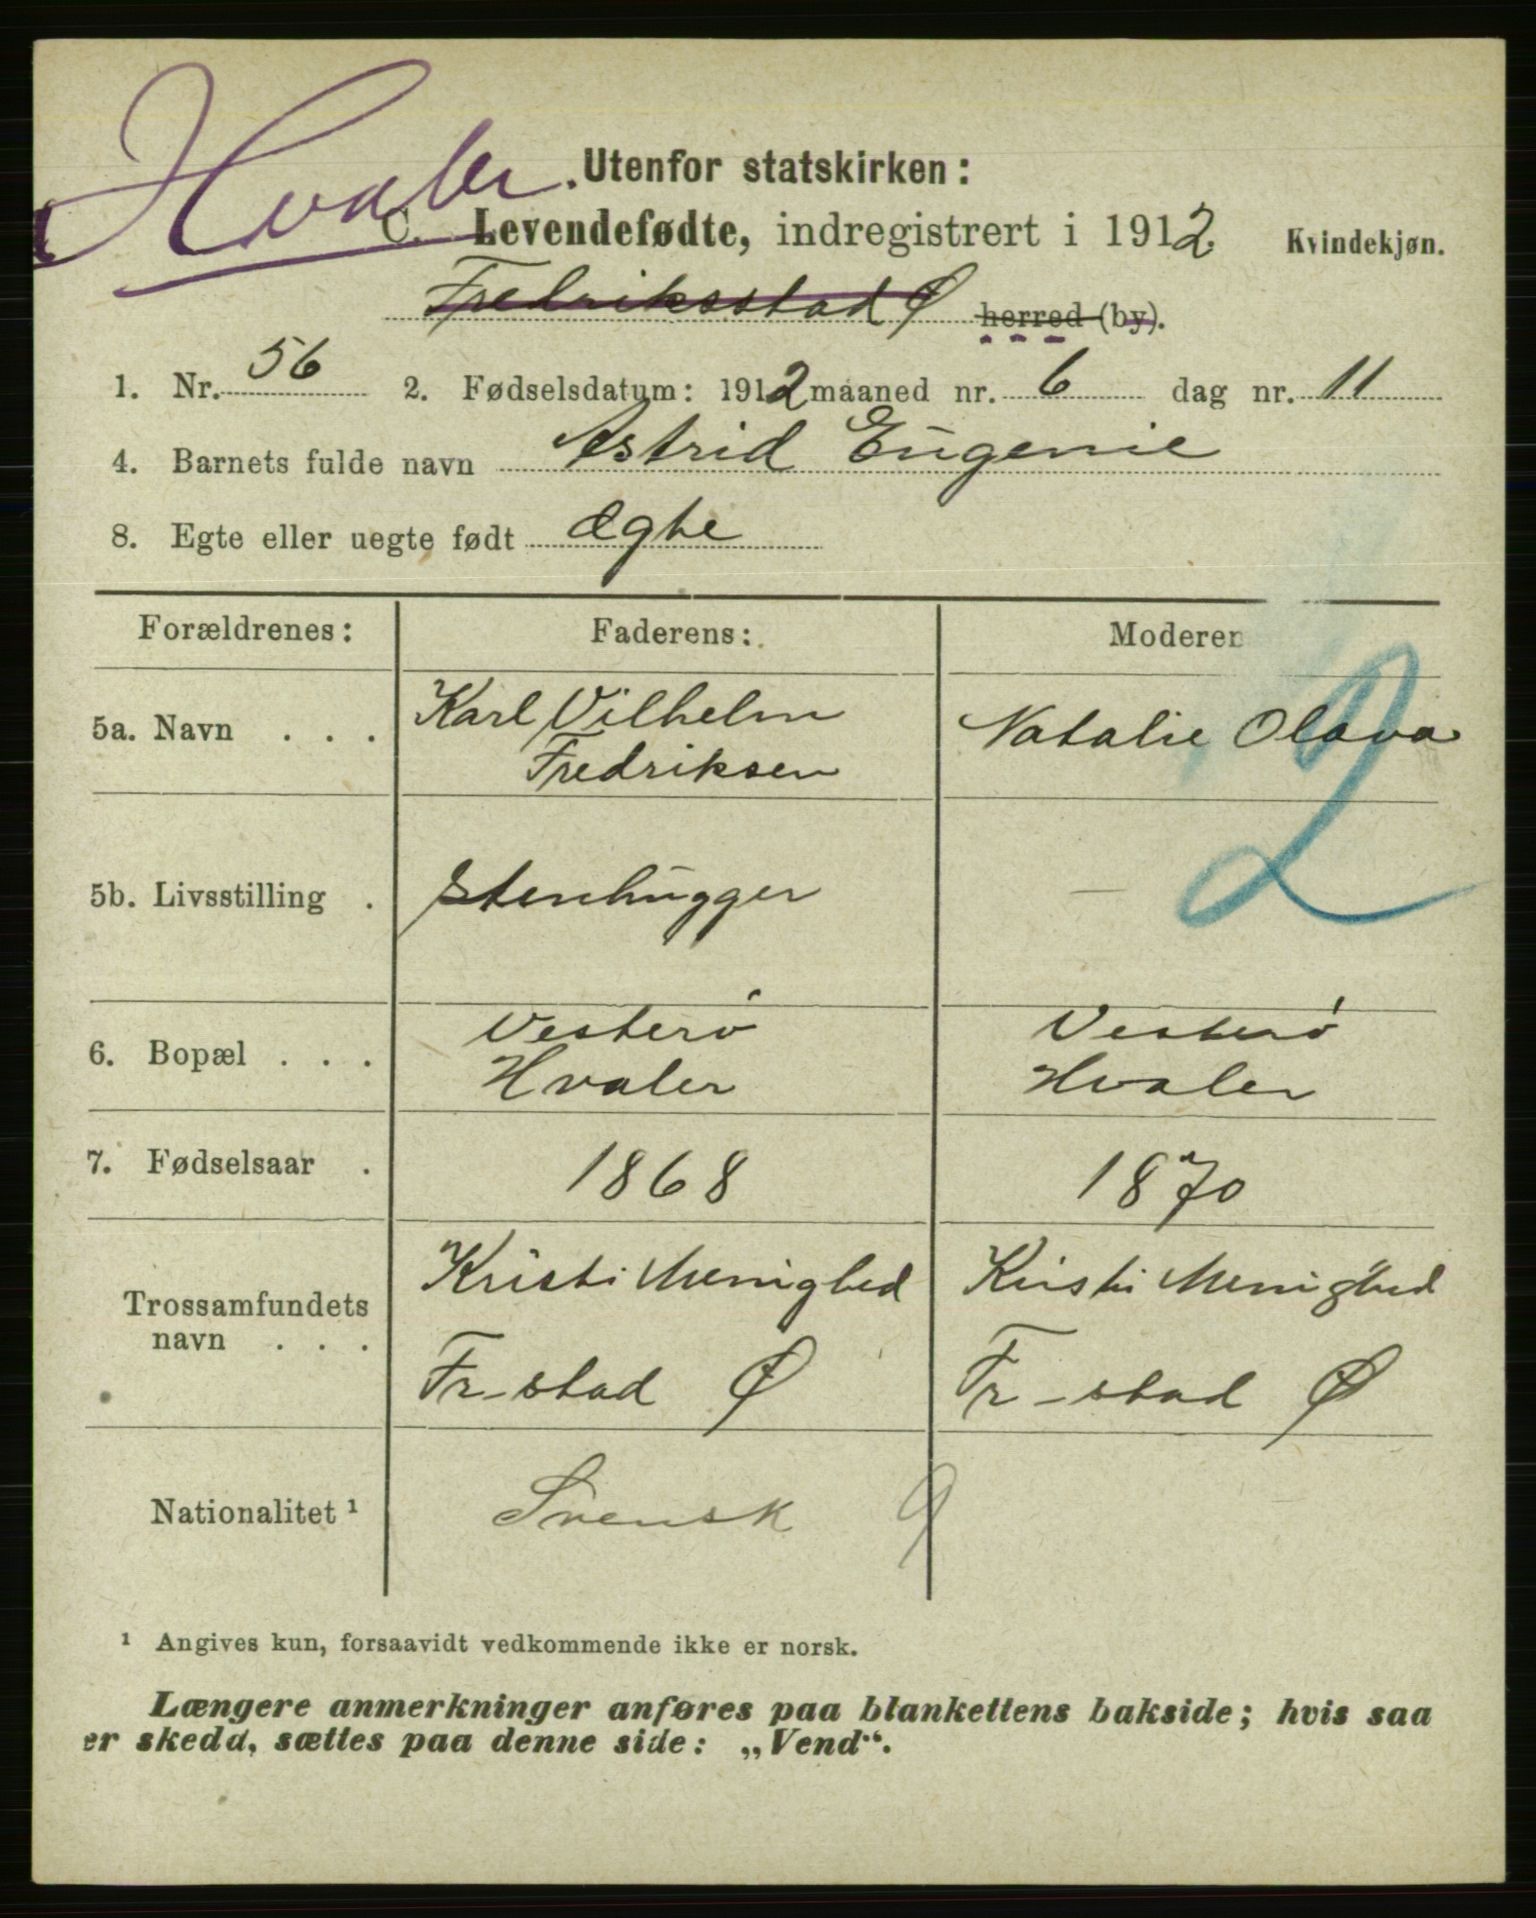 Hvaler.
Utenfor statskirken:
C. Levendefødte, indregistrert i 1912 Kvindekjøn.
Fredriksstad Ø herred (by).
1. Nr. 56 2. Fødselsdatum: 1912 maaned nr. 6 dag nr. 11
4. Barnets fulde navn Astrid Eugenie
8. Egte eller uegte født Ægte
Forældrenes: Faderens: Moderen
5a. Navn . . . Karl Vilhelm Fredriksen Natalie Olava
2
5b. Livsstilling . Stenhugger —
6. Bopæl . . . Vesterø Hvaler Vesterø Hvaler
7. Fødselsaar . 1868 1870
Trossamfundets navn . . . Kristi Menighed Fr-stad Ø Kristi Menighed Fr-stad Ø
Nationalitet ¹ Svensk 9
¹ Angives kun, forsaavidt vedkommende ikke er norsk.
Længere anmerkninger anføres paa blankettens bakside; hvis saa
er skedd, sættes paa denne side: „Vend“.